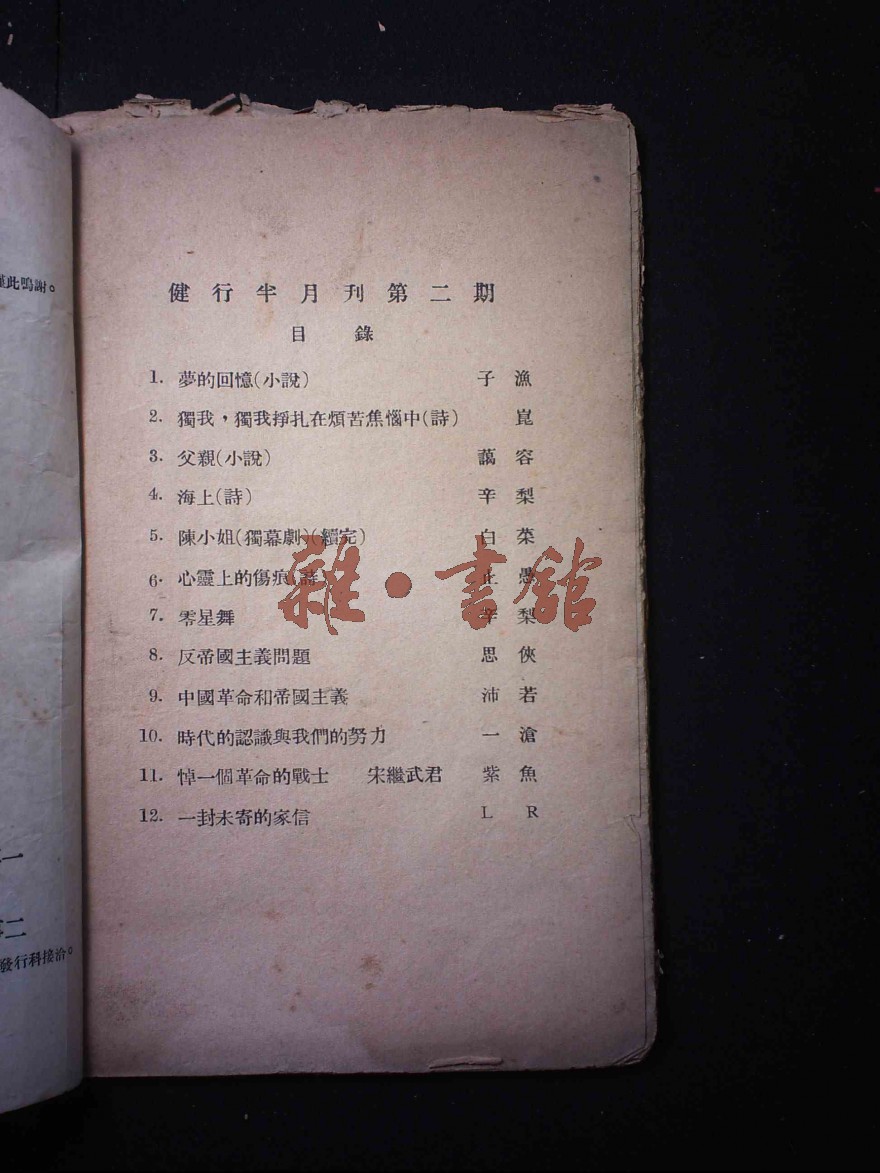 此鳴謝。
一
二
發行科接洽。
健行半月刊第二期
目錄
1. 夢的回憶(小說) 子漁
2. 獨我，獨我掙扎在煩苦焦惱中(詩) 崑
3. 父親(小說) 藹容
4. 海上(詩) 辛梨
5. 陳小姐(獨幕劇)(續完) 白菜
6. 心靈上的傷痕(詩) 止愚
7. 零星舞 辛梨
8. 反帝國主義問題 思俠
9. 中國革命和帝國主義 沛若
10. 時代的認識與我們的努力 一滄
11. 悼一個革命的戰士 宋繼武君 紫魚
12. 一封未寄的家信 L R
雜·書館